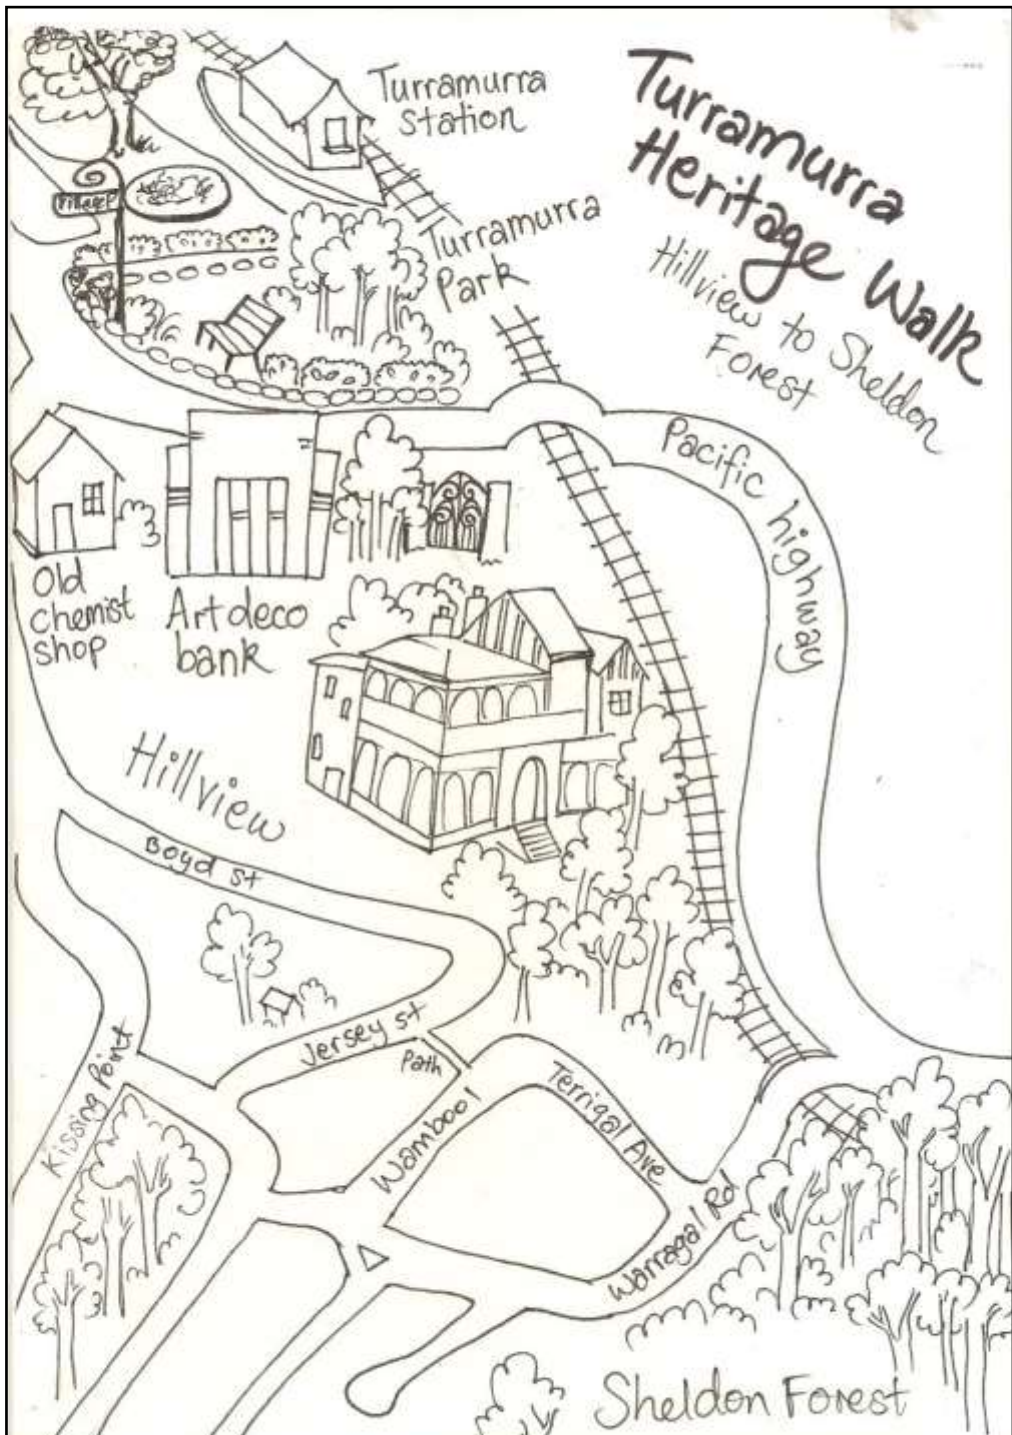 Turramurra
Heritage Walk
Hillview to Sheldon
Forest
Turramurra
Station
Village
Turramurra
Park
Pacific highway
Old
chemist
shop
Art deco
bank
Hillview
Boyd st
Jersey st
Path
Kissing Point
Wambool
Terrigal Ave
Warragal Rd
Sheldon Forest